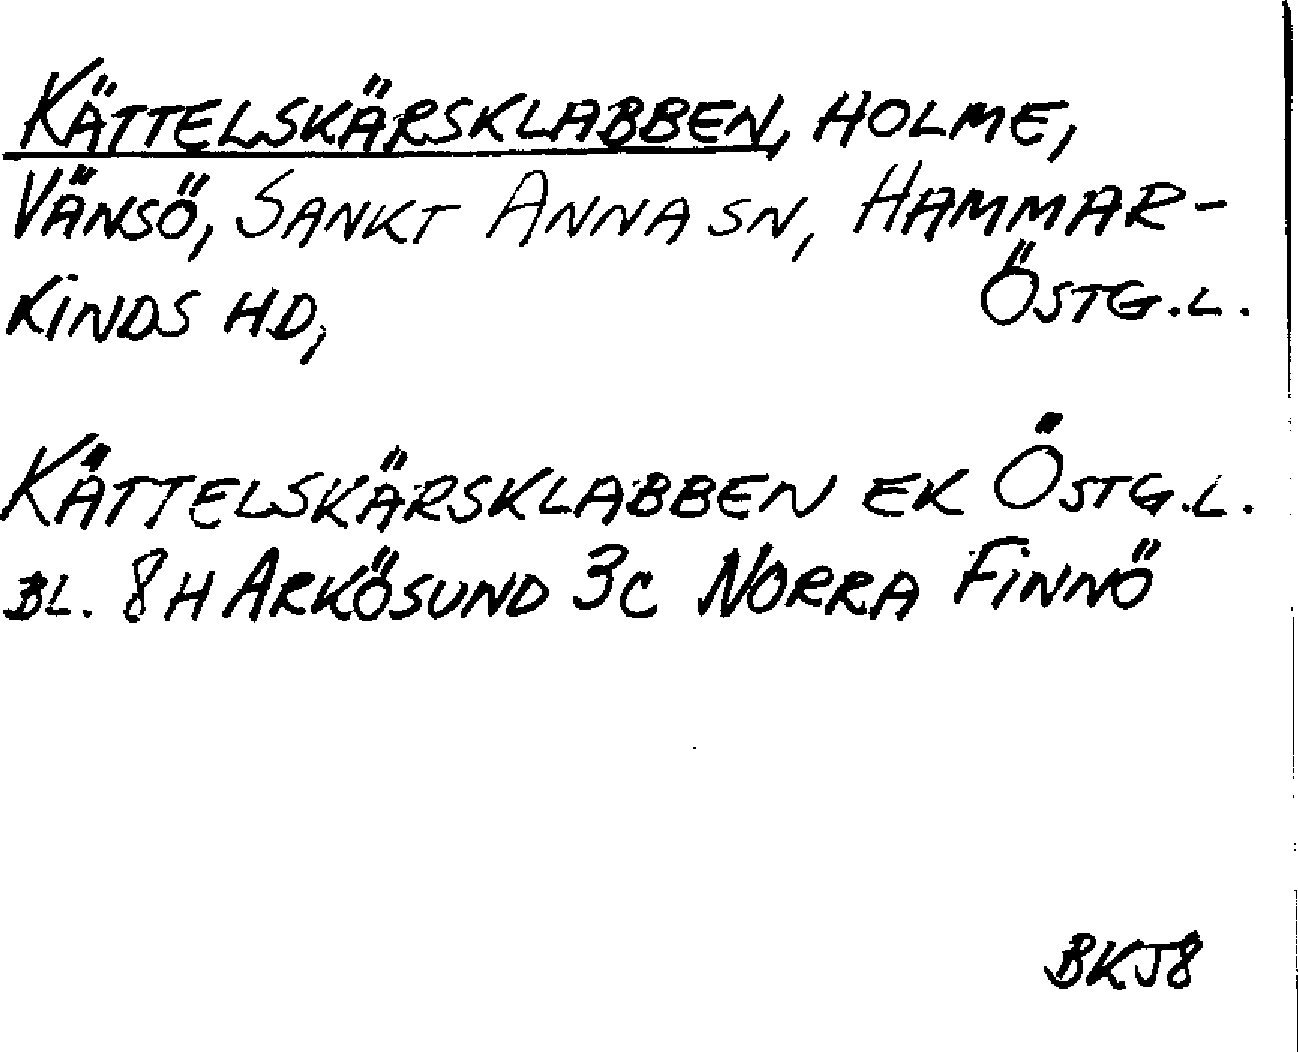 KÄTTELSKÄRSKLABBEN, HOLME,
VÄNSÖ, SANKT ANNA SN, HAMMAR-
KINDS HD, ÖSTG.L.
KÄTTELSKÄRSKLABBEN EK ÖSTG.L.
BL. 8H ARKÖSUND 3C NORRA FINNÖ
BKJ8